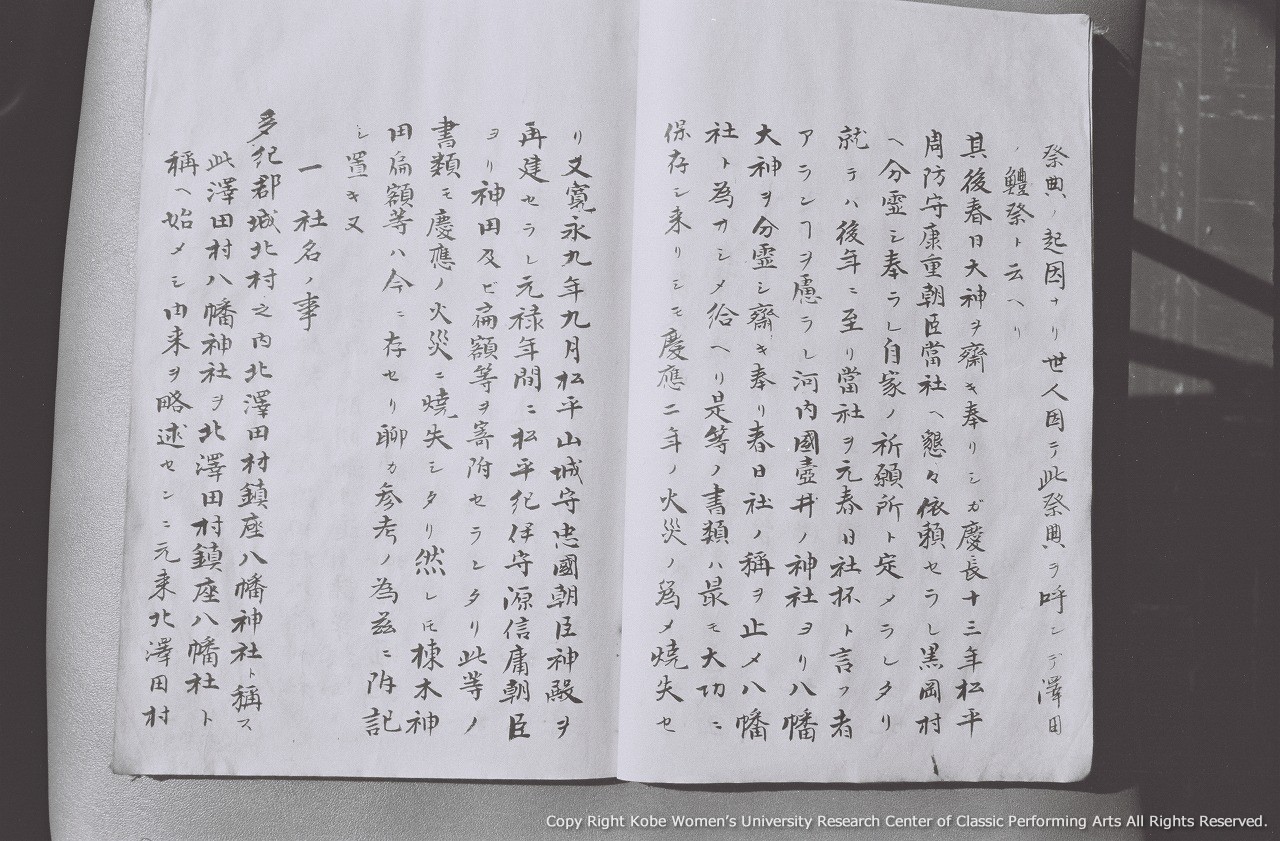 祭典ノ起因ナリ世人因テ此祭典ヲ呼ンデ澤田
ノ鱧祭ト云ヘリ
其後春日大神ヲ齋キ奉リシガ慶長十三年松平
周防守康重朝臣當社ヘ懇々依頼セラレ黒岡村
ヘ分霊シ奉ラレ自家ノ祈願所ト定メラレタリ
就テハ後年ニ至リ當社ヲ元春日社抔ト言フ者
アランヿヲ慮ラレ河内國壺井ノ神社ヨリ八幡
大神ヲ分霊シ齋キ奉リ春日社ノ稱ヲ止メ八幡
社ト為サシメ給ヘリ是等ノ書類ハ最モ大切ニ
保存シ来リシモ慶應二年ノ火災ノ為メ焼失セ
リ又寛永九年九月松平山城守忠國朝臣神殿ヲ
再建セラレ元禄年間ニ松平紀伊守源信庸朝臣
ヨリ神田及ビ扁額等ヲ寄附セラレタリ此等ノ
書類モ慶應ノ火災ニ焼失シタリ然レ𪜈棟木神
田扁額等ハ今ニ存セリ聊カ参考ノ為茲ニ附記
シ置キ又
一 社名ノ事
多紀郡城北村之内北澤田村鎮座八幡神社ト稱ス
此澤田村八幡神社ヲ北澤田村鎮座八幡社ト
稱ヘ始メシ由来ヲ略述センニ元来北澤田村
Copy Right Kobe Women's University Research Center of Classic Performing Arts All Rights Reserved.